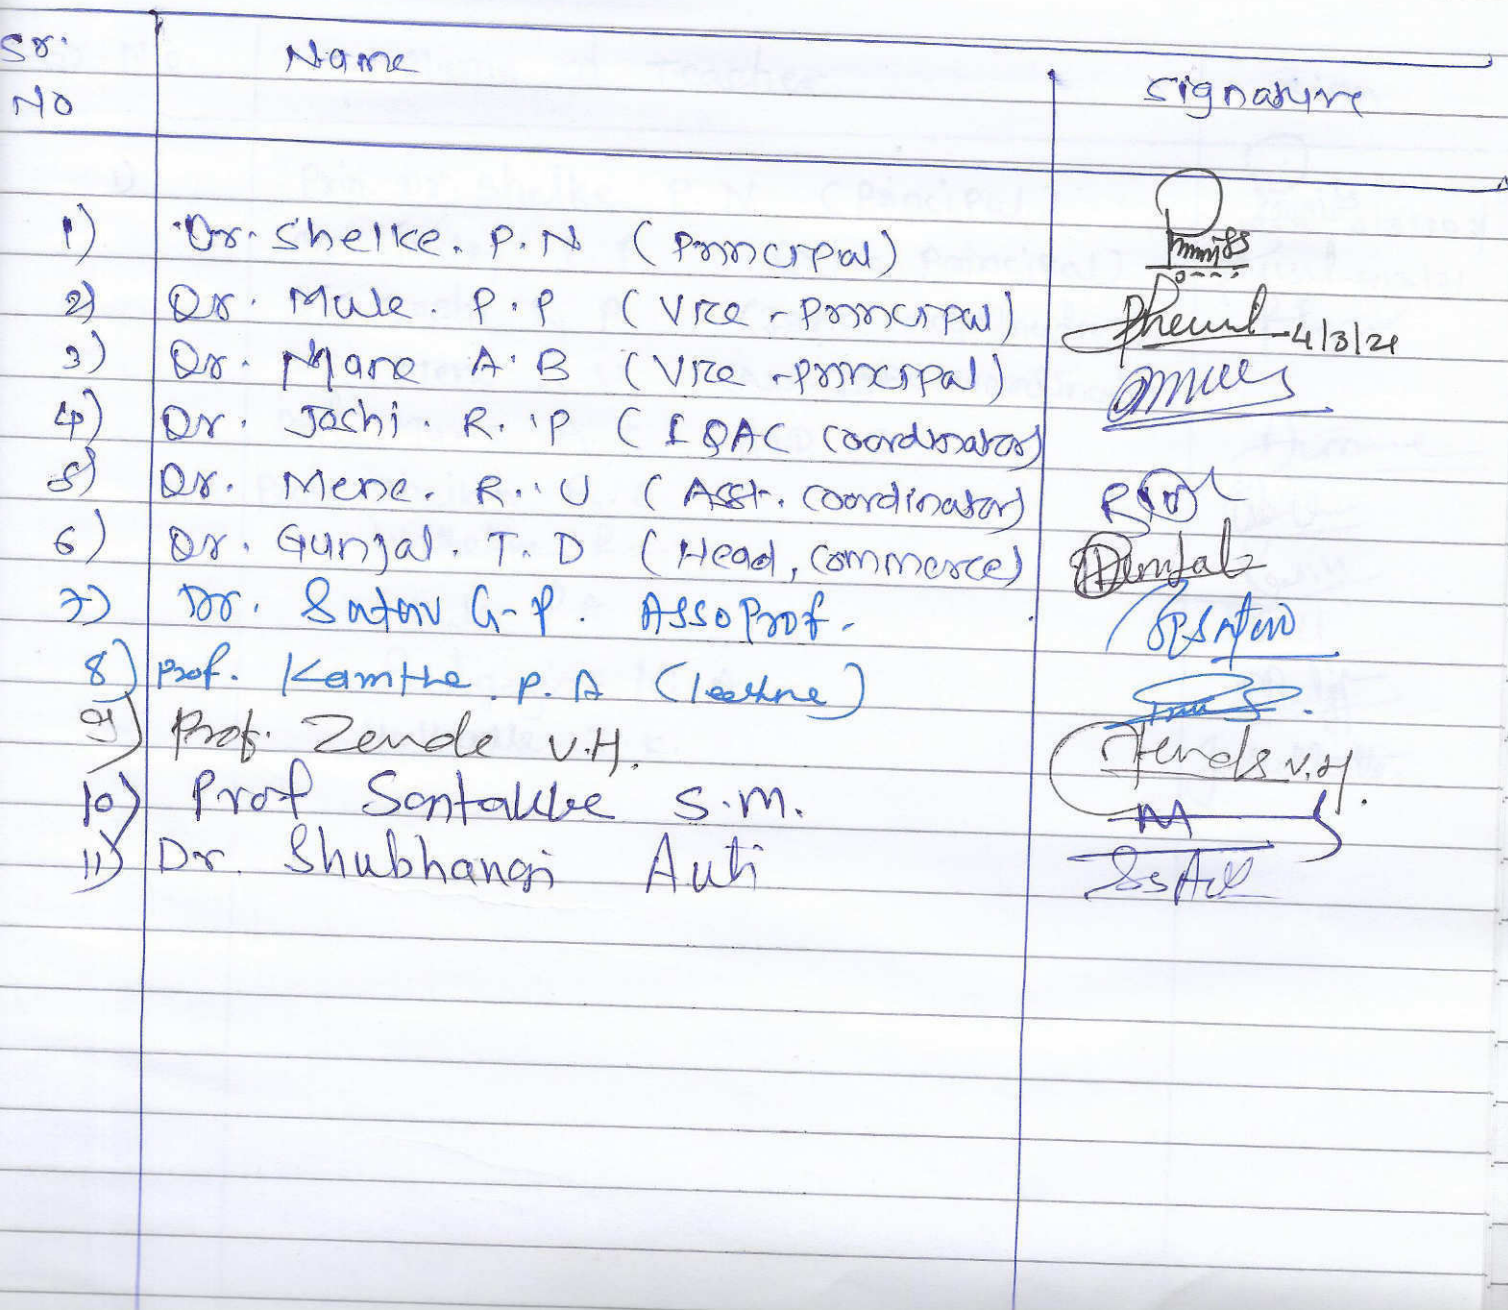 Sr. Name Signature
No
1) Dr. Shelke. P. N (Principal)
2) Dr. Mule. P. P (Vice-Principal) 4/3/21
3) Dr. Mane A. B (Vice-Principal)
4) Dr. Joshi. R. P (IQAC Coordinator)
5) Dr. Mene. R. U (Asst. Coordinator)
6) Dr. Gunjal. T. D (Head, Commerce)
7) Dr. Satav G-P. Asso Prof.
8) Prof. Kamthe. P. A
9) Prof. Zende V.H. Zende V.H.
10) Prof Santakke S.M.
11) Dr. Shubhangi Auti